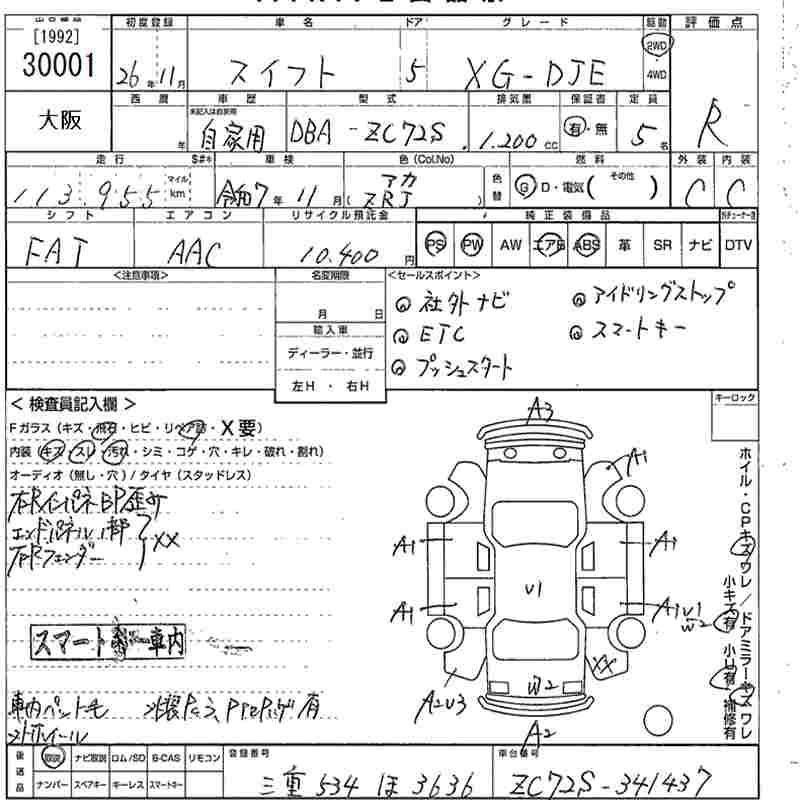 [1992]
初度登録 車名 ドア グレード 駆動 評価点
30001 26年11月 スイフト 5 XG-DJE 2WD 4WD R
大阪
西暦 車歴 型式 排気量 保証書 定員
年 未記入は自家用 自家用 DBA-ZC72S 1.200cc 有・無 5名
走行 S#* 車検 色(Col.No) 色替 燃料 その他 外装 内装
113,955 マイル km 令和7年11月 アカ (ZRJ) G D・電気( ) C C
シフト エアコン リサイクル預託金 純正装備品
FAT AAC 10.400円 PS PW AW エアB ABS 革 SR ナビ DTV
<注意事項> 名変期限 <セールスポイント>
月 日
輸入車
ディーラー・並行
左H・右H
社外ナビ アイドリングストップ
ETC スマートキー
プッシュスタート
<検査員記入欄> キーロック
Fガラス(キズ・飛石・ヒビ・リペア跡・X要)
内装(キズ・スレ・汚れ・シミ・コゲ・穴・キレ・破れ・割れ)
オーディオ(無し・穴)/タイヤ(スタッドレス)
右Rインパネ BP歪み
エンドパネル 1部
右Rフェンダー XX
スマート 車内
車内ペット毛
A3
A1
A1 A1
V1
A1 A1V1
W2
XX
A2U3 W2
A2
ホイル・CPキズワレ/ドアミラーキズワレ
小キズ有 小U有 補修有
後送品 取説 ナビ取説 ロム/SD B-CAS リモコン 登録番号 車台番号
ナンバー スペアキー キーレス スマートキー 三重 534 ほ 3636 ZC72S-341437